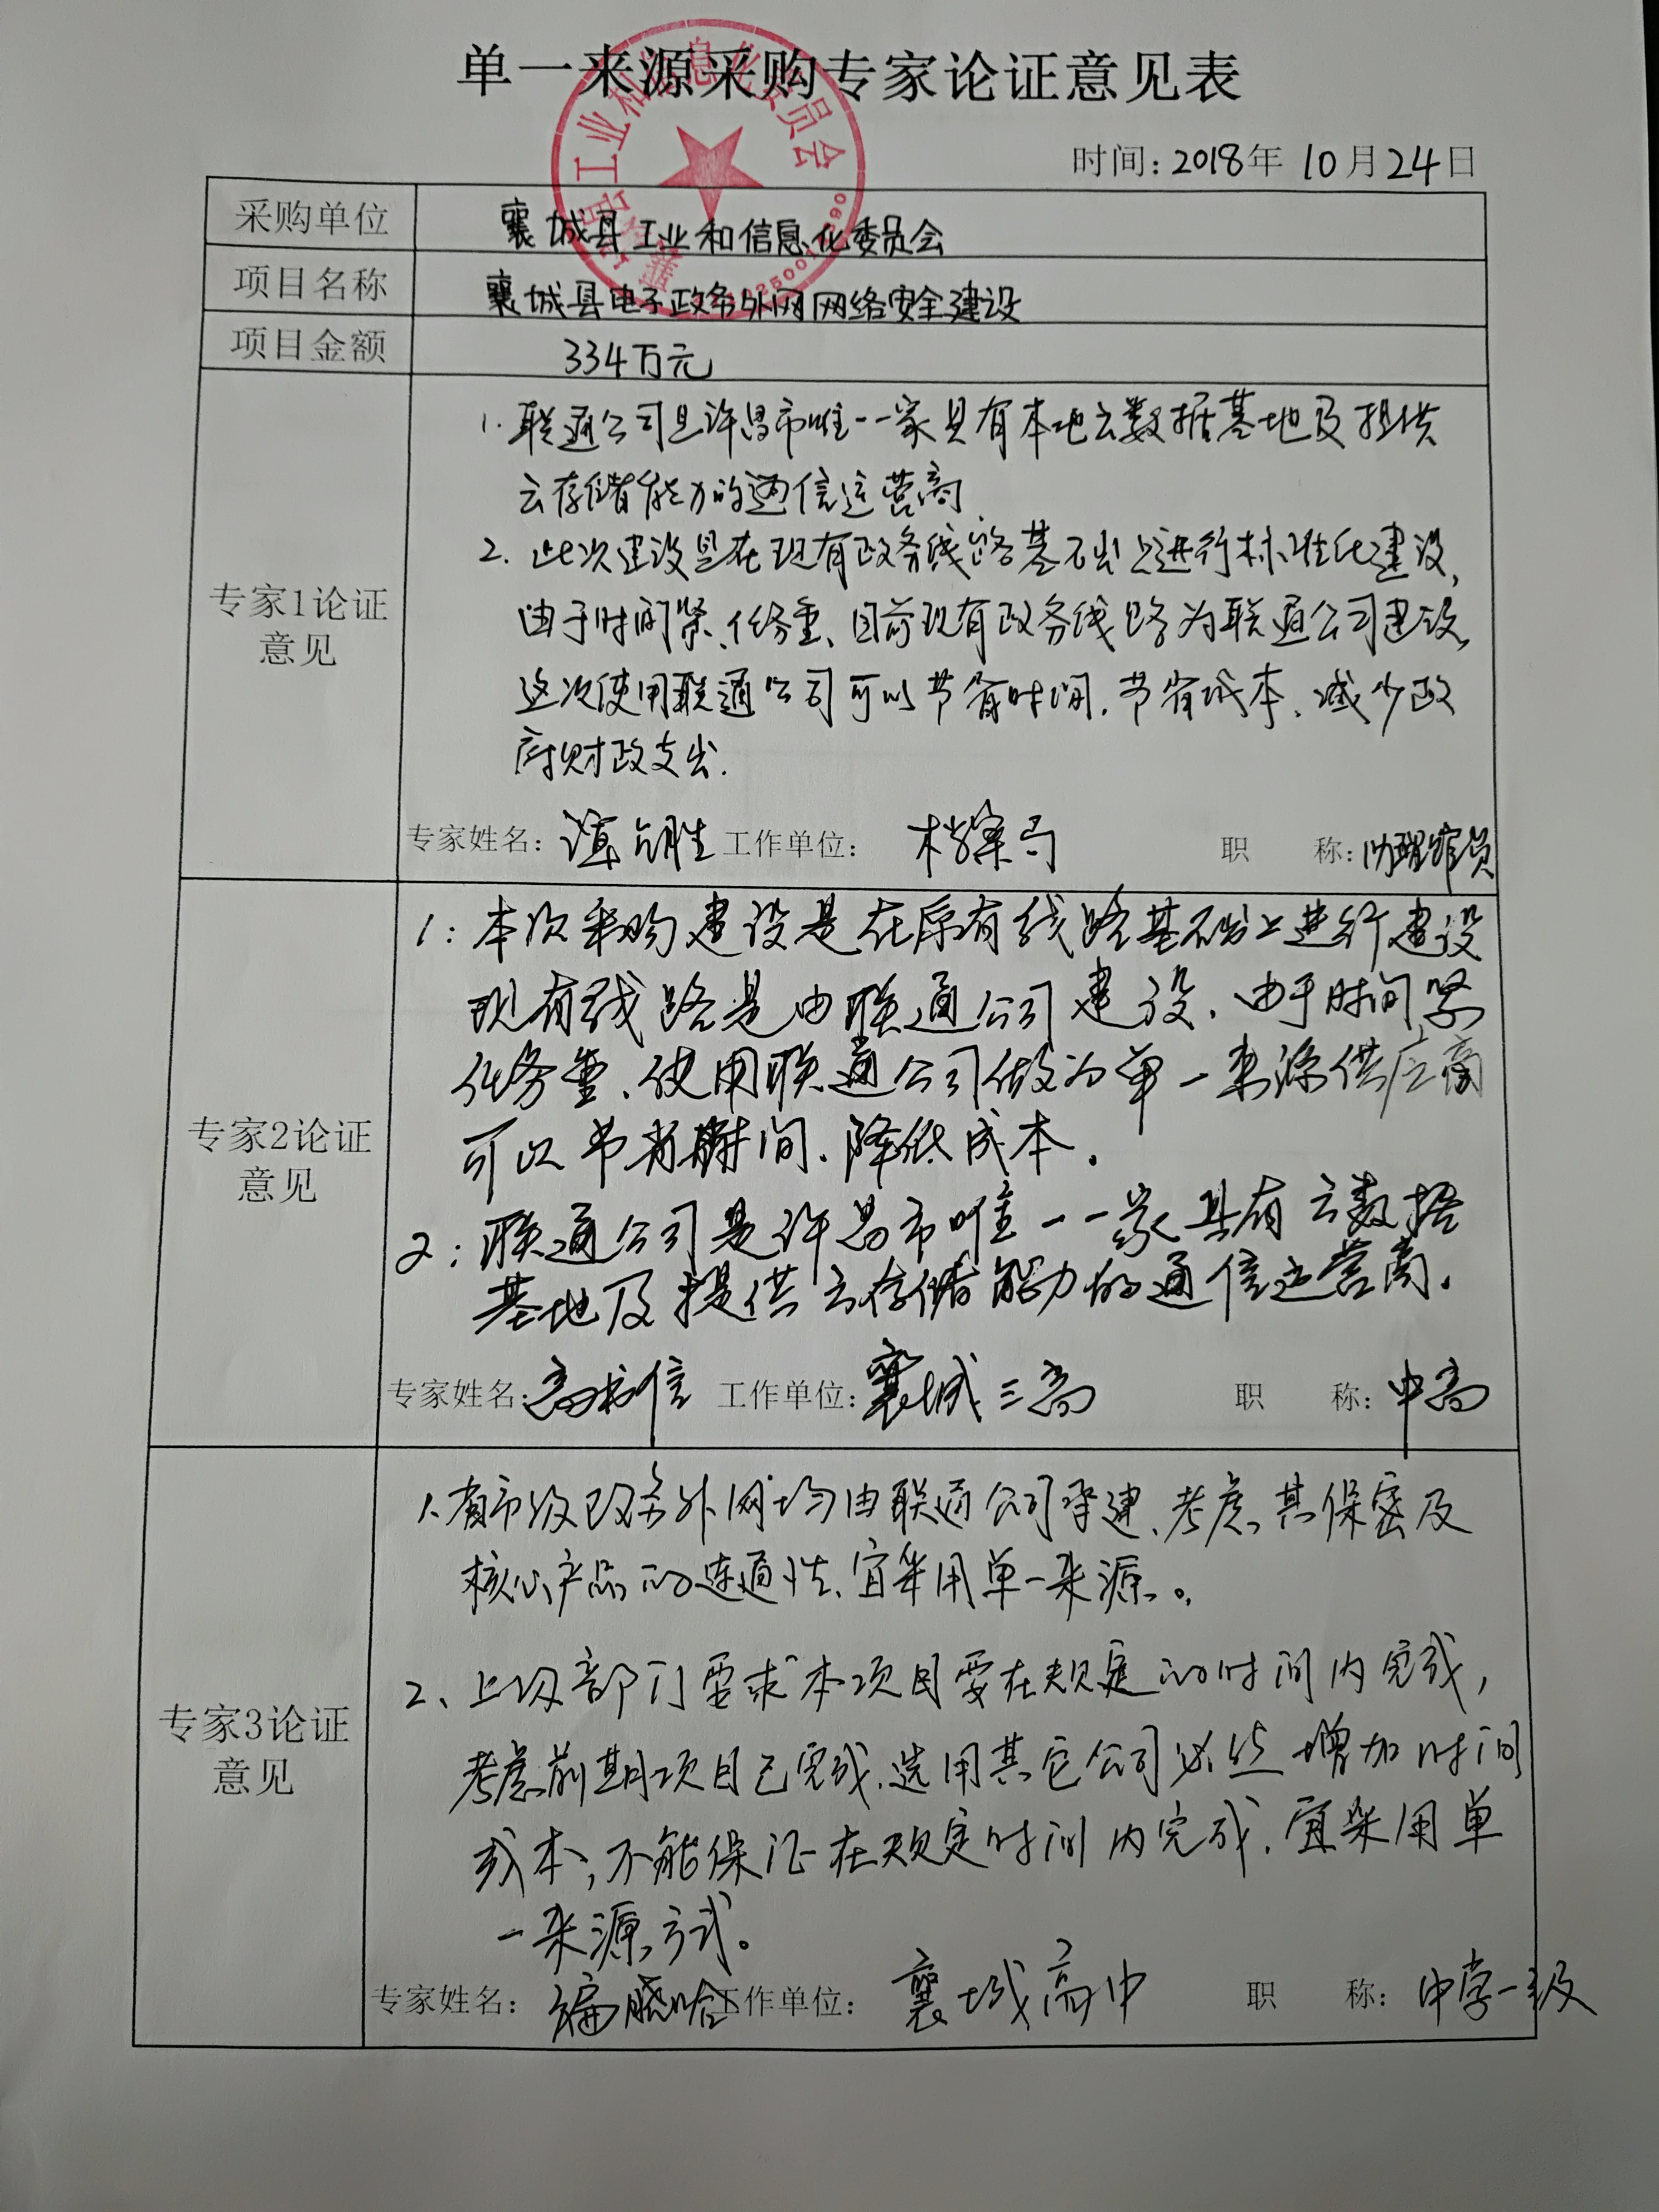 单一来源采购专家论证意见表
时间：2018年 10月24日
采购单位
襄城县工业和信息化委员会
项目名称
襄城县电子政务外网网络安全建设
项目金额
334万元
专家1论证
意见
1.联通公司是许昌市唯一一家具有本地云数据基地及提供
云存储能力的通信运营商
2.此次建设是在现有政务线路基础上进行标准化建设,
由于时间紧、任务重、目前现有政务线路为联通公司建设,
这次使用联通公司可以节省时间.节省成本、减少政
府财政支出.
专家姓名： 工作单位： 档案局 职 称：助理馆员
专家2论证
意见
1：本次采购建设是在原有线路基础上进行建设
现有线路是由联通公司建设.由于时间紧
任务重、使用联通公司做为单一来源供应商
可以节省时间、降低成本.
2：联通公司是许昌市唯一一家具有云数据
基地及提供云存储能力的通信运营商.
专家姓名： 工作单位：襄城三高 职 称：中高
专家3论证
意见
1、省市级政务外网均由联通公司承建、考虑其保密及
核心产品的连通性、宜采用单一来源。
2、上级部门要求本项目要在规定的时间内完成，
考虑前期项目已完成.选用其它公司必然增加时间
成本，不能保证在规定时间内完成.宜采用单
一来源方式。
专家姓名： 工作单位： 襄城高中 职 称：中学一级
工业和信息化委员会